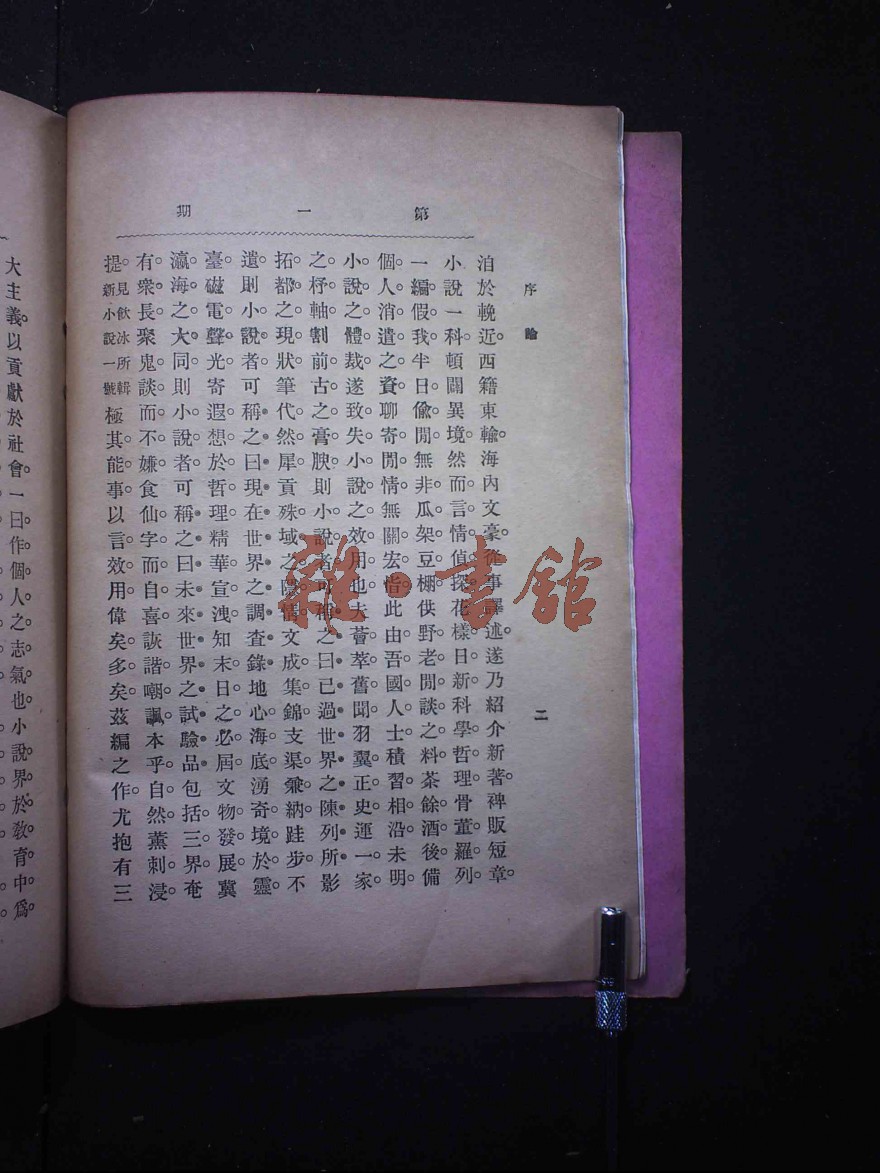 第一期
序論
洎於輓近。西籍東輸。海內文豪。從事譯述。遂乃紹介新著。裨販短章。
小說一科。頓闢異境。然而言情偵探。花樣日新。科學哲理。骨董羅列。
一編假我。半日偷閒。無非瓜架豆棚。供野老閒談之料。茶餘酒後。備
個人消遣之資。聊寄閒情。無關宏恉。此由吾國人士。積習相沿。未明
小說之體裁。遂致失小說之效用也。夫薈萃舊聞。羽翼正史。運一家
之杼軸。割前古之膏腴。則小說者。可稱之曰已過世界之陳列所。影
拓都之現狀。筆代然犀。貢殊域之隱情。文成集錦。支渠兼納。跬步不
遺。則小說者可稱之曰現在世界之調查錄。地心海底。湧奇境於靈
臺。磁電聲光。寄遐想於哲理。精華宣洩。知末日之必屆。文物發展。冀
瀛海之大同。則小說者可稱之曰未來世界之試驗品。包括三界。奄
有衆長。聚鬼談而不嫌。食仙字而自喜。詼諧嘲諷。本乎自然。薰刺浸
提。見飲冰所輯新小說一號極其能事。以言效用。偉矣多矣。茲編之作。尤抱有三
二
大主義以貢獻於社會。一曰。作個人之志氣也。小說界於教育中。爲
雜·書館